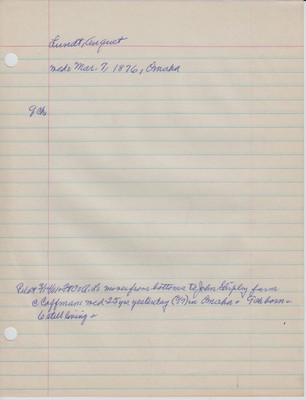 Lundt, August
mar Mar. 7, 1876, Omaha
9 ch
moves from bottoms to John Shipley farm
c Coffmans med 25 yrs yesterday (99) in Omaha. 9 ch born
6 still living.